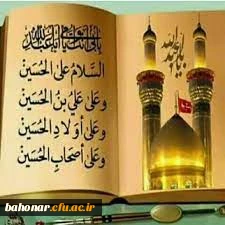 بابی انت و امی یا اباعبدالله
السَّلامُ عَلَى الحُسَيْن
وَعَلى عَلِيِّ بْنِ الحُسَيْن
وَعَلى أَوْلادِ الحُسَيْن
وَعَلى أَصْحابِ الحُسَيْن
یا اباعبدالله
bahonar.cfu.ac.ir